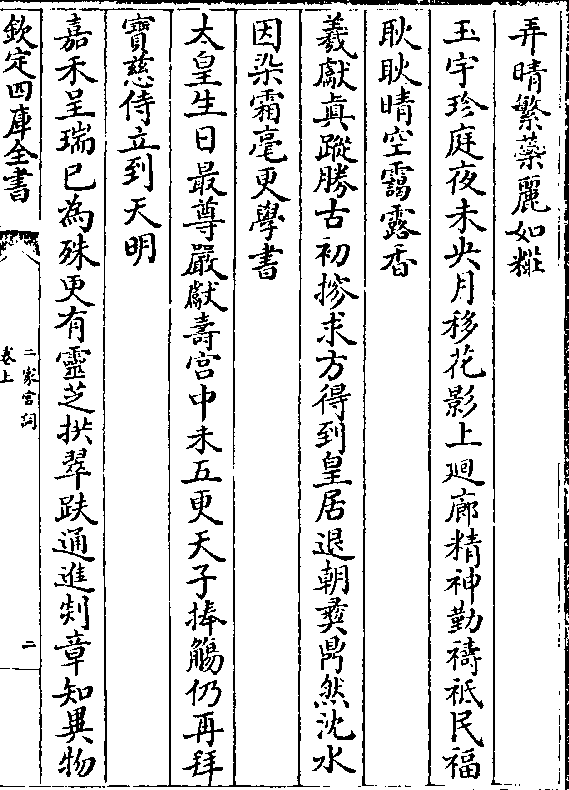 弄晴繁蘂麗如糚
玉宇珍庭夜未央月移花影上廻廊精神勤禱祗民福
耿耿晴空靄露香
羲獻真蹤勝古初搜求方得到皇居退朝彜鼎然沈水
因染霜毫更學書
太皇生日最尊嚴獻壽宮中未五更天子捧觴仍再拜
寳慈侍立到天明
嘉禾呈瑞已為殊更有靈芝拱翠趺通進剡章知異物
欽定四庫全書
二家宮詞
卷上
二